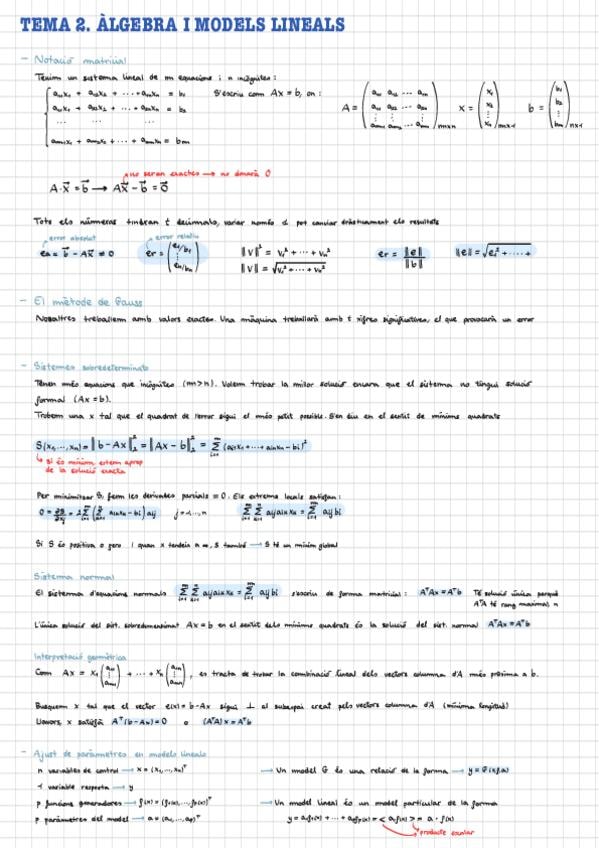 TEMA 2. ÀLGEBRA I MODELS LINEALS
- Notació matricial
Tenim un sistema lineal de m equacions i n incògnites:
a₁₁x₁ + a₁₂x₂ + ··· + a₁ₙxₙ = b₁ S'escriu com Ax = b, on: A = (a₁₁ a₁₂ ··· a₁ₙ x = (x₁ b = (b₁
a₂₁x₁ + a₂₂x₂ + ··· + a₂ₙxₙ = b₂ a₂₁ a₂₂ ··· a₂ₙ x₂ b₂
... ... ... ⋮ ⋮ ⋮
aₘ₁x₁ + aₘ₂x₂ + ··· + aₘₙxₙ = bₘ aₘ₁ aₘ₂ ··· aₘₙ)m×n xₙ)n×1 bₘ)m×1
no seran exactes → no donarà 0
A·x⃗ = b⃗ → Ax⃗ - b⃗ = 0⃗
Tots els números tindran t decimals, variar només d pot canviar dràsticament els resultats
error absolut error relatiu
eₐ = b⃗ - Ax⃗ ≠ 0 er = (e₁/b₁ ⋮ eₙ/bₙ) ‖v‖² = v₁² + ··· + vₙ² er = ‖e‖/‖b‖ ‖e‖ = √e₁² + ····
‖v‖ = √v₁² + ··· + vₙ²
- El mètode de Gauss
Nosaltres treballem amb valors exactes. Una màquina treballarà amb t xifres significatives, el que provocarà un error
- Sistemes sobredeterminats
Tenen més equacions que incògnites (m>n). Volem trobar la millor solució encara que el sistema no tingui solució
formal (Ax = b).
Trobem una x tal que el quadrat de l'error sigui el més petit possible. S'en diu en el sentit de mínims quadrats
S(x₁,...,xₙ) = ‖b - Ax‖₂² = ‖Ax - b‖₂² = Σ (aᵢ₁x₁ + ··· + aᵢₙxₙ - bᵢ)²
si és mínim, estem aprop
de la solució exacta
Per minimitzar S, fem les derivades parcials = 0. Els extrems locals satisfan:
0 = ∂S/∂xⱼ = 2 Σ (Σ aᵢₖxₖ - bᵢ) aᵢⱼ j = 1,...,n Σ Σ aᵢⱼaᵢₖxₖ = Σ aᵢⱼbᵢ
Si S és positiva o zero i quan x tendeix a ∞, S també → S té un mínim global
Sistema normal
El sistema d'equacions normals Σ Σ aᵢⱼaᵢₖxₖ = Σ aᵢⱼbᵢ s'escriu de forma matricial: AᵀAx = Aᵀb Té solució única perquè
AᵀA té rang maximal, n
L'única solució del sist. sobredimensionat Ax = b en el sentit dels mínims quadrats és la solució del sist. normal AᵀAx = Aᵀb
Interpretació geomètrica
Com Ax = x₁(a₁₁ ⋮ aₘ₁) + ··· + xₙ(a₁ₙ ⋮ aₘₙ), es tracta de trobar la combinació lineal dels vectors columna d'A més pròxima a b.
Busquem x tal que el vector e(x) = b - Ax sigui ⊥ al subespai creat pels vectors columna d'A (mínima longitud)
Llavors, x satisfà Aᵀ(b - Ax) = 0 o (AᵀA)x = Aᵀb
- Ajust de paràmetres en models lineals
n variables de control → x = (x₁,...,xₙ)ᵀ → Un model G és una relació de la forma → y = G(x,a)
1 variable resposta → y
p funcions generadores → f(x) = (f₁(x),...,fₚ(x))ᵀ → Un model lineal és un model particular de la forma
p paràmetres del model → a = (a₁,...,aₚ)ᵀ y = a₁f₁(x) + ··· + aₚfₚ(x) = < a, f(x) > = a · f(x)
producte escalar